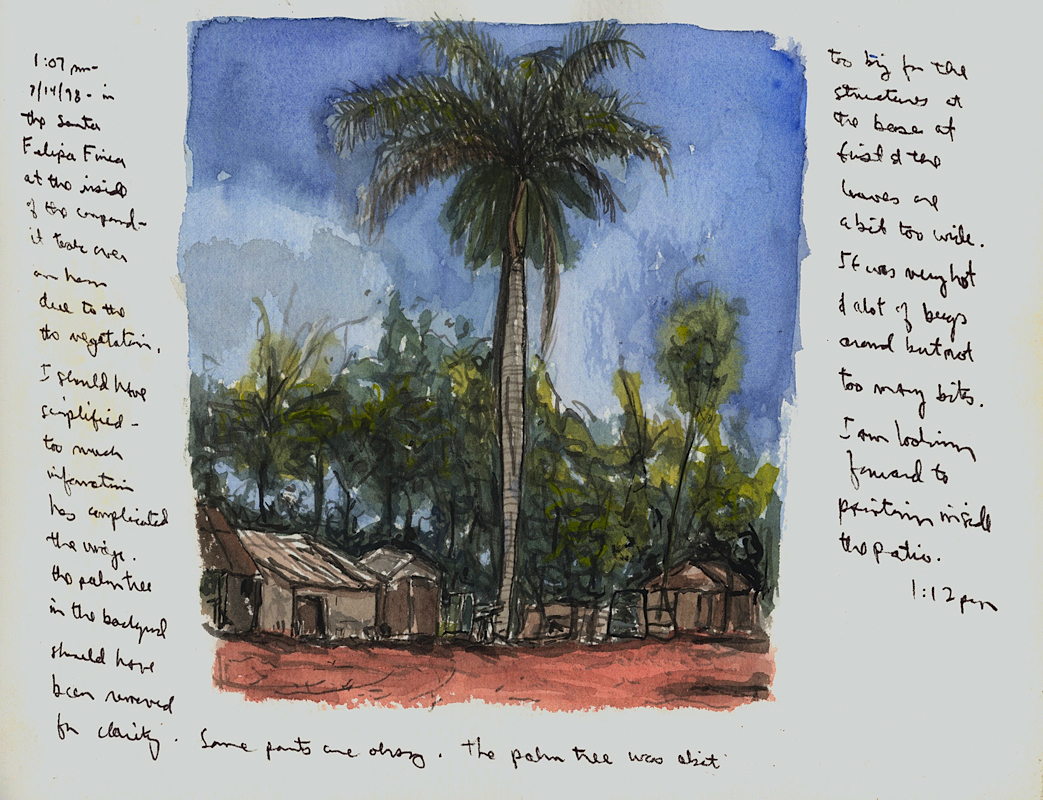 1:07 pm-
7/14/98 - in
the Santa
Felipa Finca
at the inside
of the compound-
it took over
an hour
due to the
the vegetation.
I should have
simplified -
too much
information
has complicated
the image.
the palm tree
in the backyard
should have
been removed
for clarity. Some parts are okay. The palm tree was a bit
too big for the
structures at
the base at
first & the
leaves are
a bit too wide.
It was very hot
& a lot of bugs
around but not
too many bites.
I am looking
forward to
painting inside
the patio.
1:12 pm